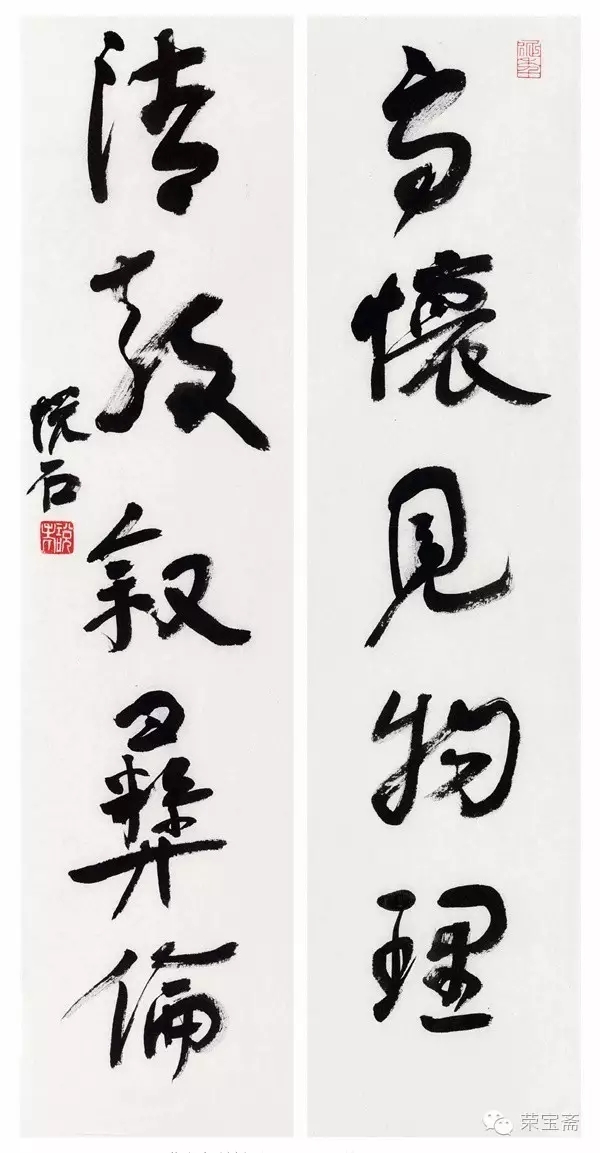 高懷見物理
清教叙彝倫
悦石
荣宝斋